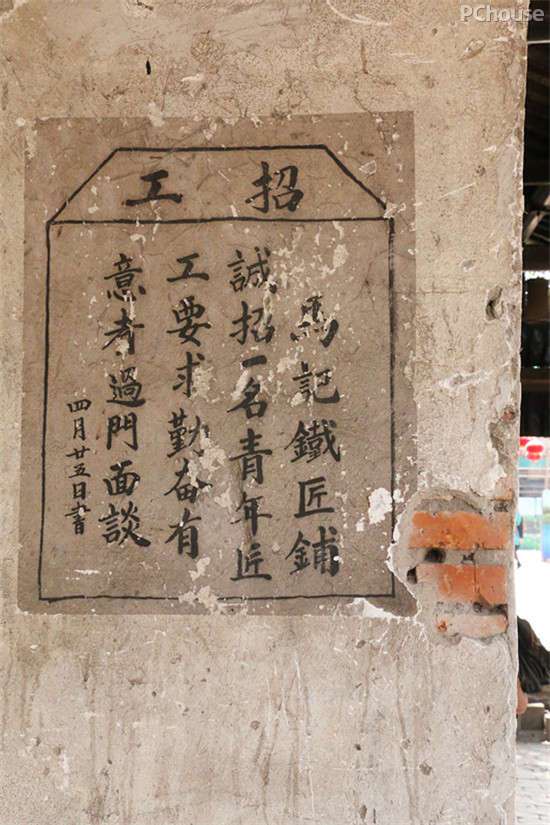 PChouse
招工
馬記鐵匠鋪
誠招一名青年匠
工要求勤奋有
意者過門面談
四月廿五日書